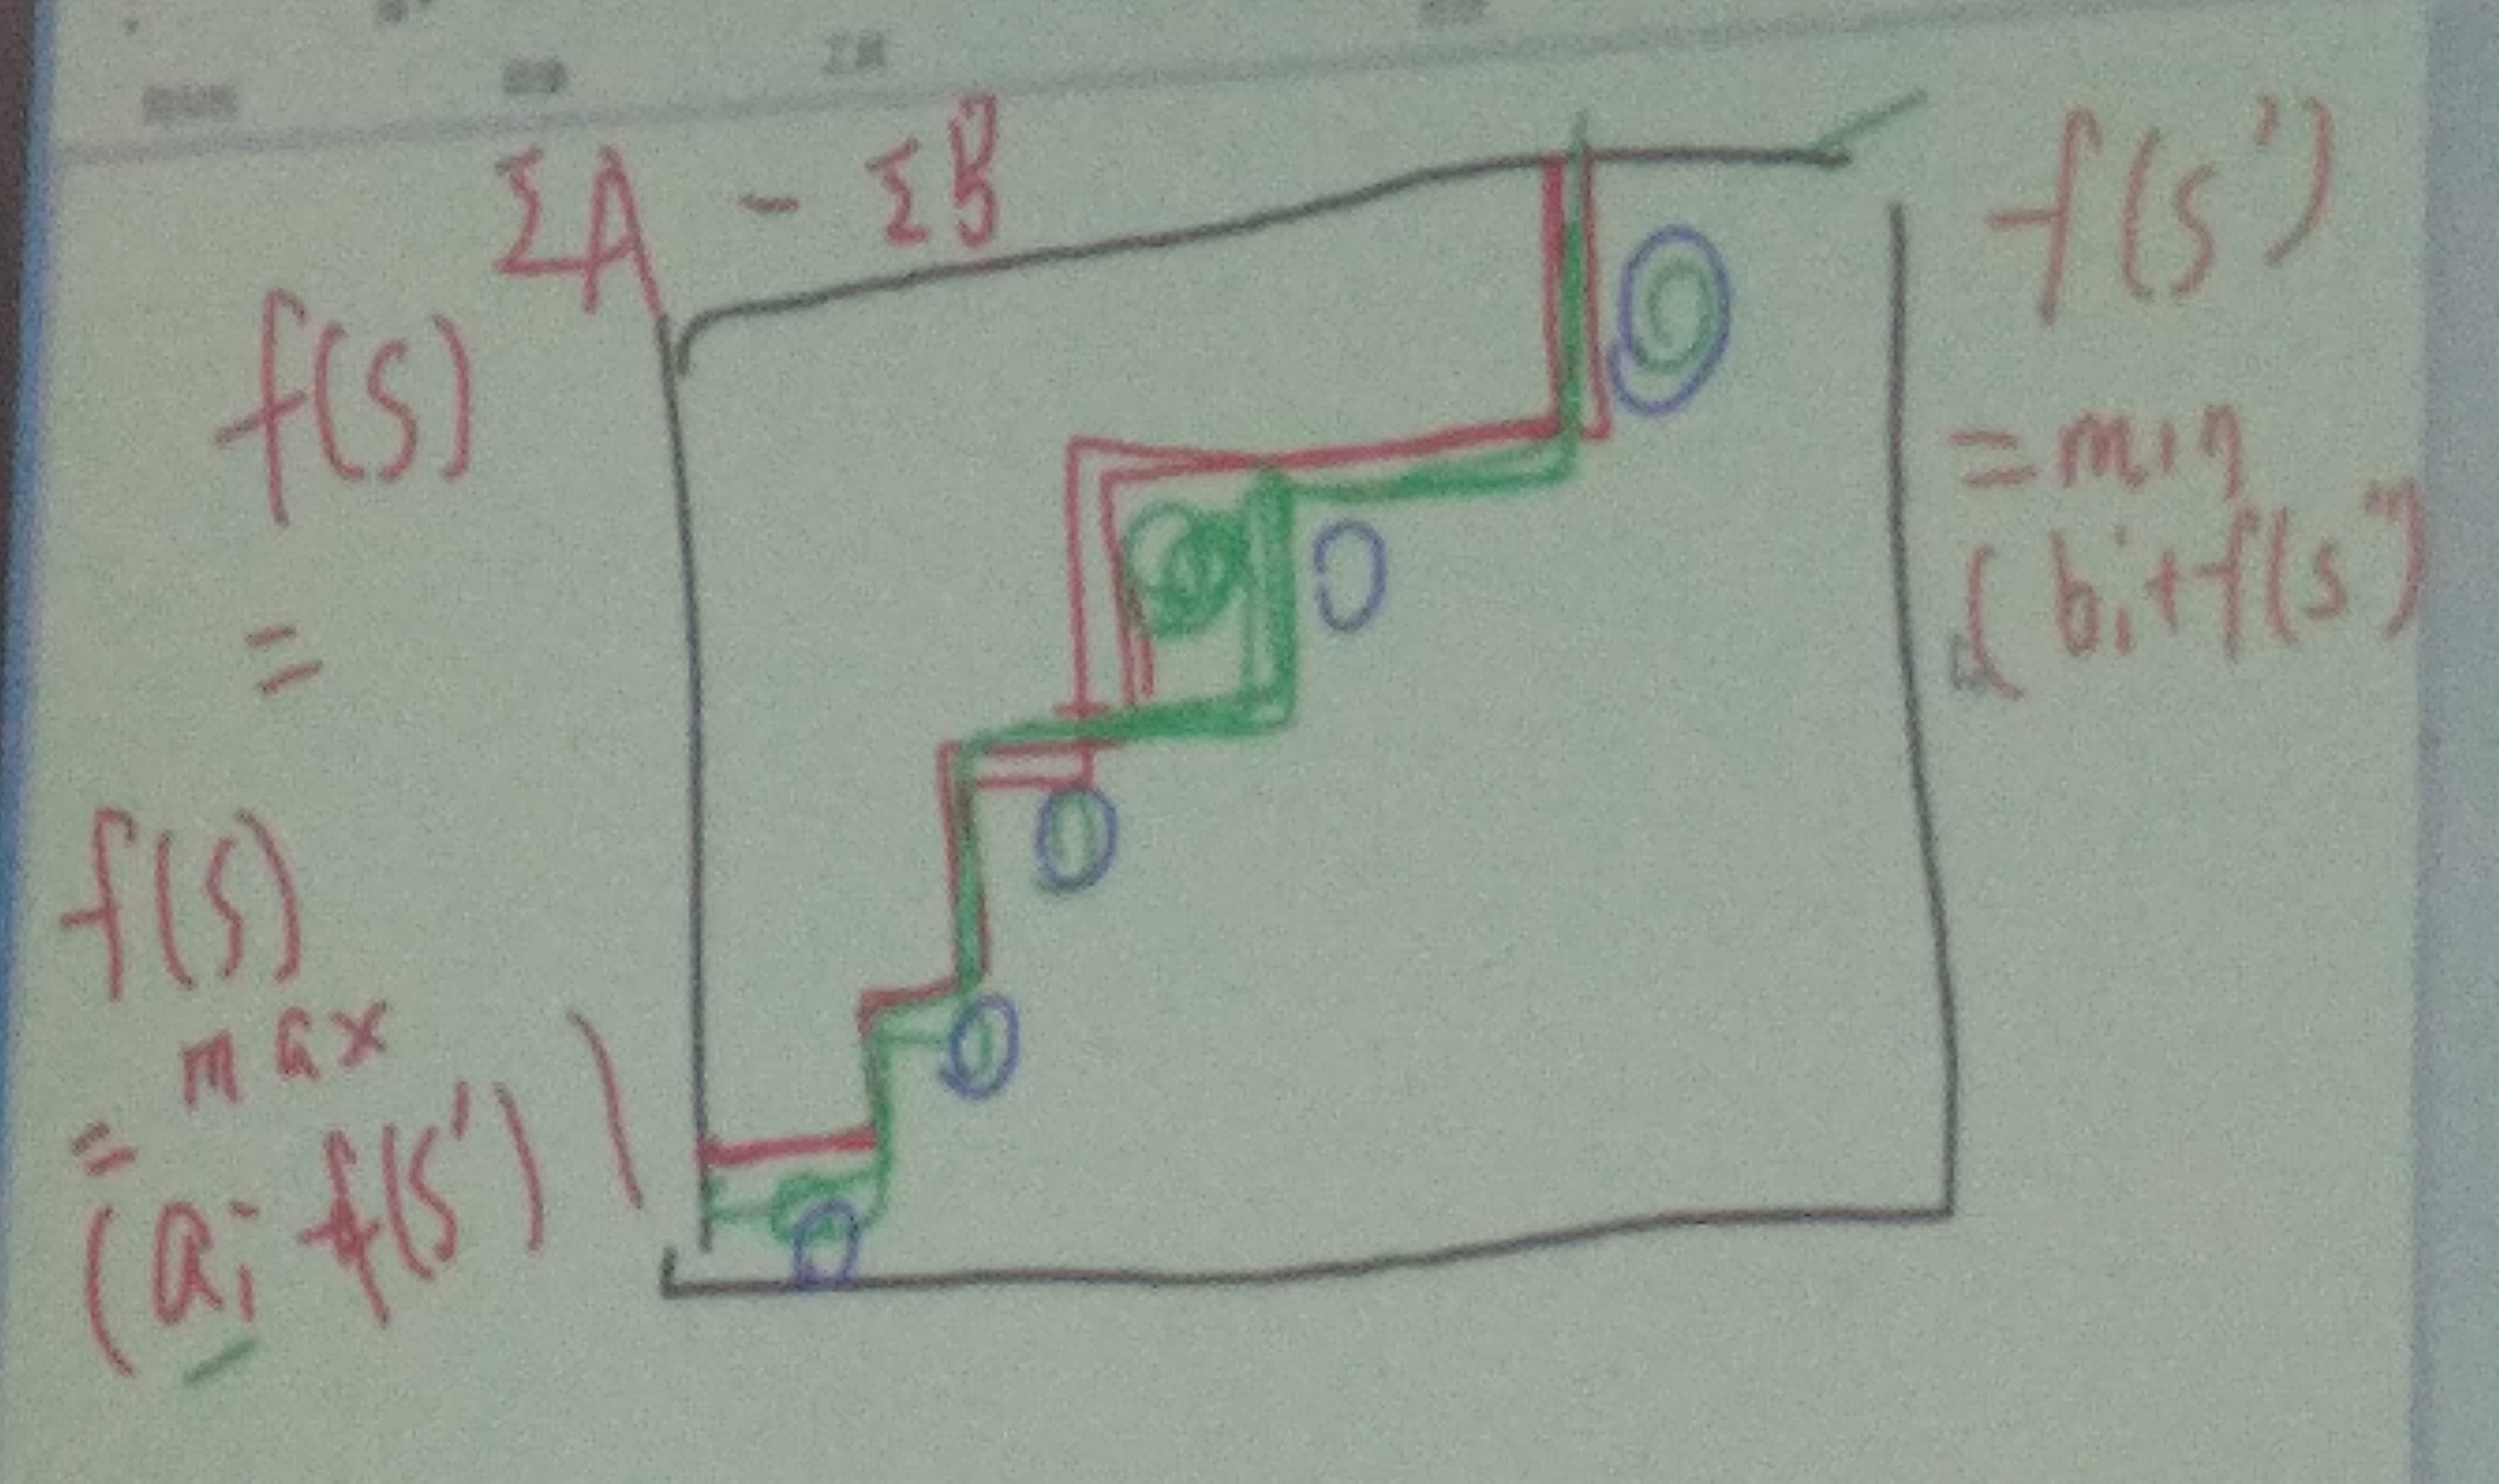 工具
ΣA - ΣB
f(s)
=
f(s)
max
=
(ai f(s')
f(s')
= min
( bi + f(s'')